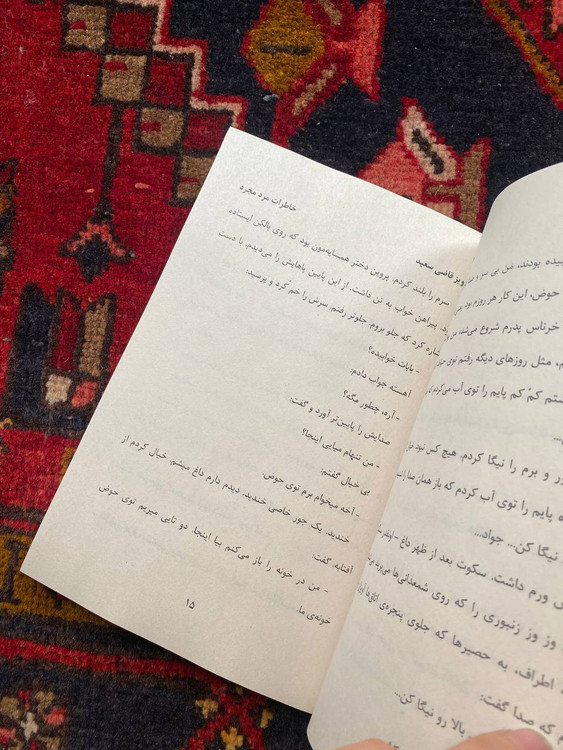 بودند، من بی سر و
حوض، این کار هر روزم بود
خرناس پدرم شروع می‌شد، من
مثل روزهای دیگه رفتم توی
کم کم پایم را توی آب می‌کردم
و برم را نیگا کردم. هیچ کس نبود
پایم را توی آب کردم که باز همان
نیگا کن... جواد...
ورم داشت. سکوت بعد از ظهر داغ -
وز وز زنبوری را که روی شمعدانی‌ها
اطراف، به حصیرها که جلوی پنجره‌ی اتاق‌ها
که صدا گفت:
بالا رو نیگا کن...
خاطرات مرد مجرد
قاضی سعید
سرم را بلند کردم. پروین دختر همسایه‌مون بود که روی بالکن ایستاده
پیراهن خواب به تن داشت. از این پایین پاهایش را می‌دیدم. با دست
اشاره کرد که جلو بروم. جلوتر رفتم. سرش را خم کرد و پرسید:
- بابات خوابیده؟
آهسته جواب دادم:
- آره، چطور مگه؟
صدایش را پایین‌تر آورد و گفت:
- من تنهام میایی اینجا؟
بی خیال گفتم:
- آخه میخوام برم توی حوض.
خندید. یک جور خاصی خندید. دیدم دارم داغ میشم. خیال کردم از
آفتابه. گفت:
- من در خونه را باز می‌کنم بیا اینجا. دو تایی میریم توی حوض
خونه‌ی ما.
۱۵